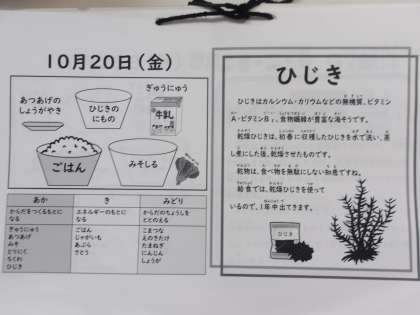 10月20日(金)
あつあげの
しょうがやき
ひじきの
にもの
ぎゅうにゅう
牛乳
ごはん
みそしる
あか
き
みどり
からだをつくるもとに
なる
エネルギーのもとに
なる
からだのちょうしを
ととのえる
ぎゅうにゅう
あつあげ
みそ
とりにく
ちくわ
ひじき
ごはん
じゃがいも
あぶら
さとう
こまつな
えのきたけ
たまねぎ
にんじん
しょうが
ひじき
ひじきはカルシウム・カリウムなどの無機質、ビタミン
A・ビタミンB₂、食物繊維が豊富な海そうです。
乾燥ひじきは、初春に収穫したひじきを水で洗い、蒸
し煮にした後、乾燥させたものです。
乾物は、食べ物を無駄にしない知恵ですね。
給食では、乾燥ひじきを使って
いるので、1年中出てきます。
ひじき